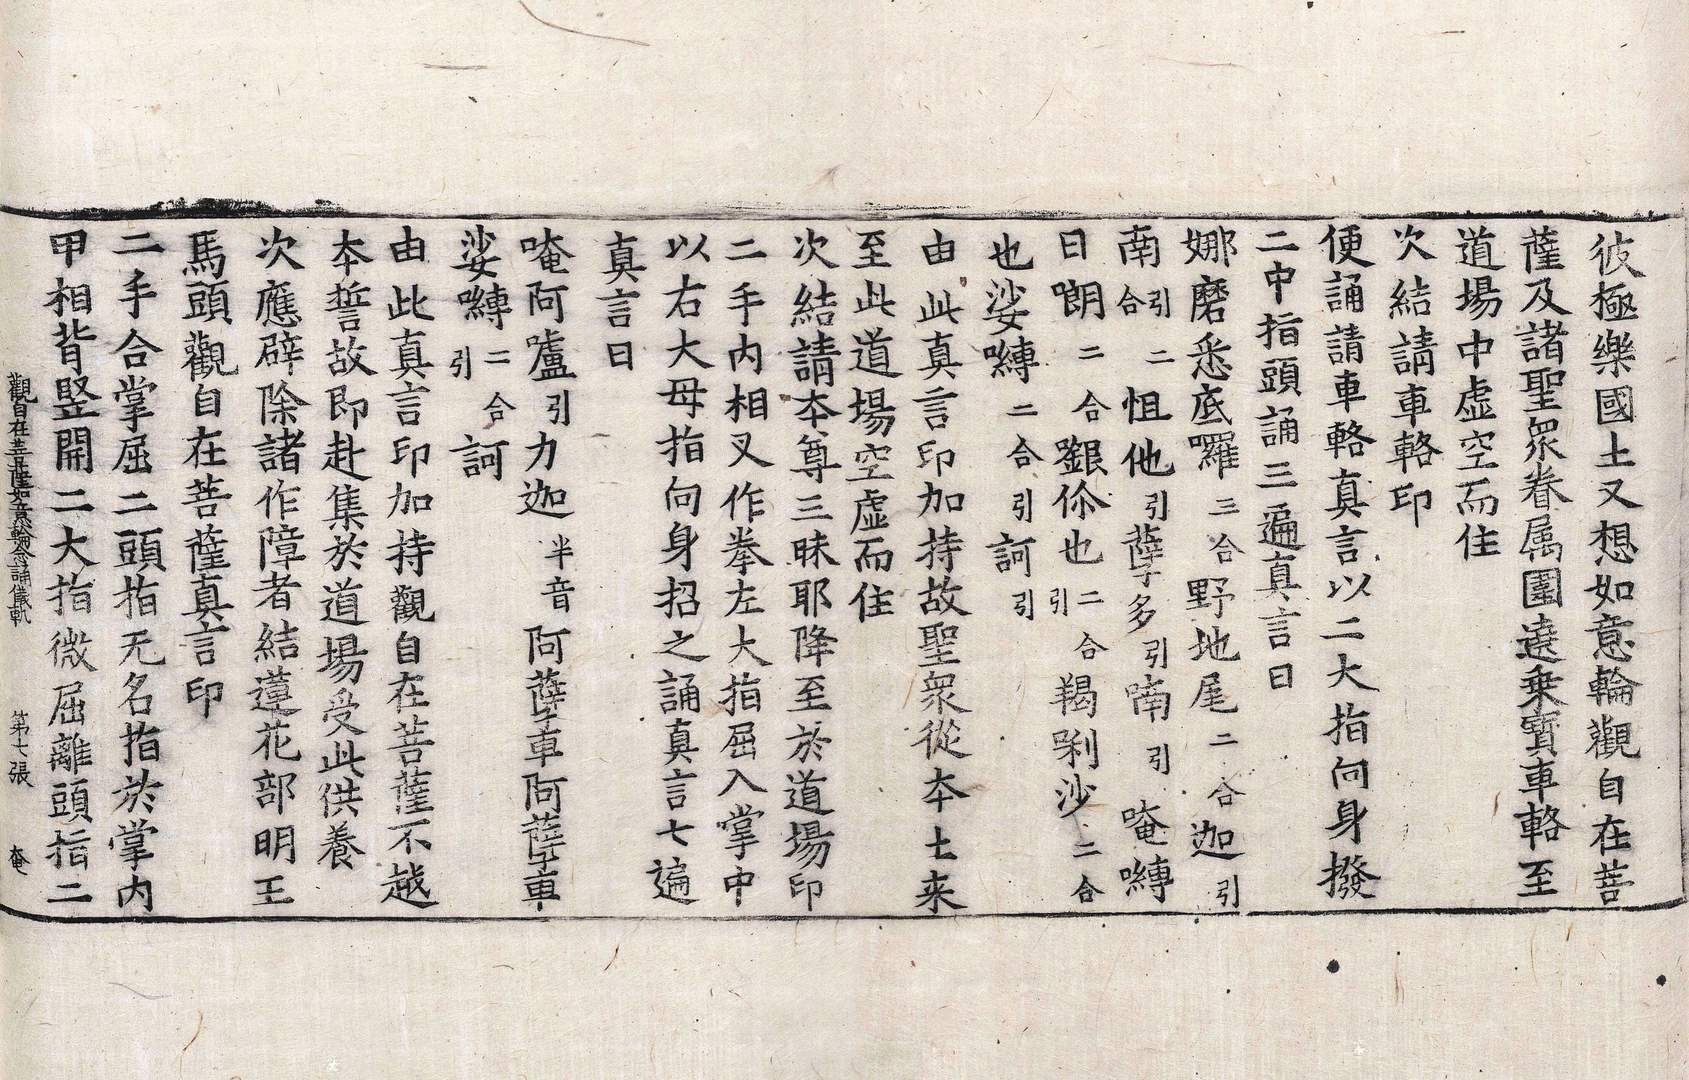 彼極樂國土又想如意輪觀自在菩
薩及諸聖衆眷属圍遶乗寳車輅至
道場中虚空而住
次結請車輅印
便誦請車輅真言以二大指向身撥
二中指頭誦三遍真言曰
娜麽悉底囉三合野地尾二合迦引
南引合二怛他引孽多引喃引唵嚩
日㘓二合𪘨你也二合引羯哵沙二合
也娑嚩二合引訶引
由此真言印加持故聖衆從夲土来
至此道場空虚而住
次結請夲尊三昧耶降至於道場印
二手内相叉作拳左大指屈入掌中
以右大母指向身招之誦真言七遍
真言曰
唵阿嚧引力迦半音阿孽車阿孽車
娑嚩二合引訶
由此真言印加持觀自在菩薩不越
夲誓故即赴集於道場受此供養
次應辟除諸作障者結蓮花部明王
馬頭觀自在菩薩真言印
二手合掌屈二頭指无名指於掌内
甲相背竪開二大指微屈離頭指二
觀自在菩薩如意輪念誦儀軌 第七張 奄